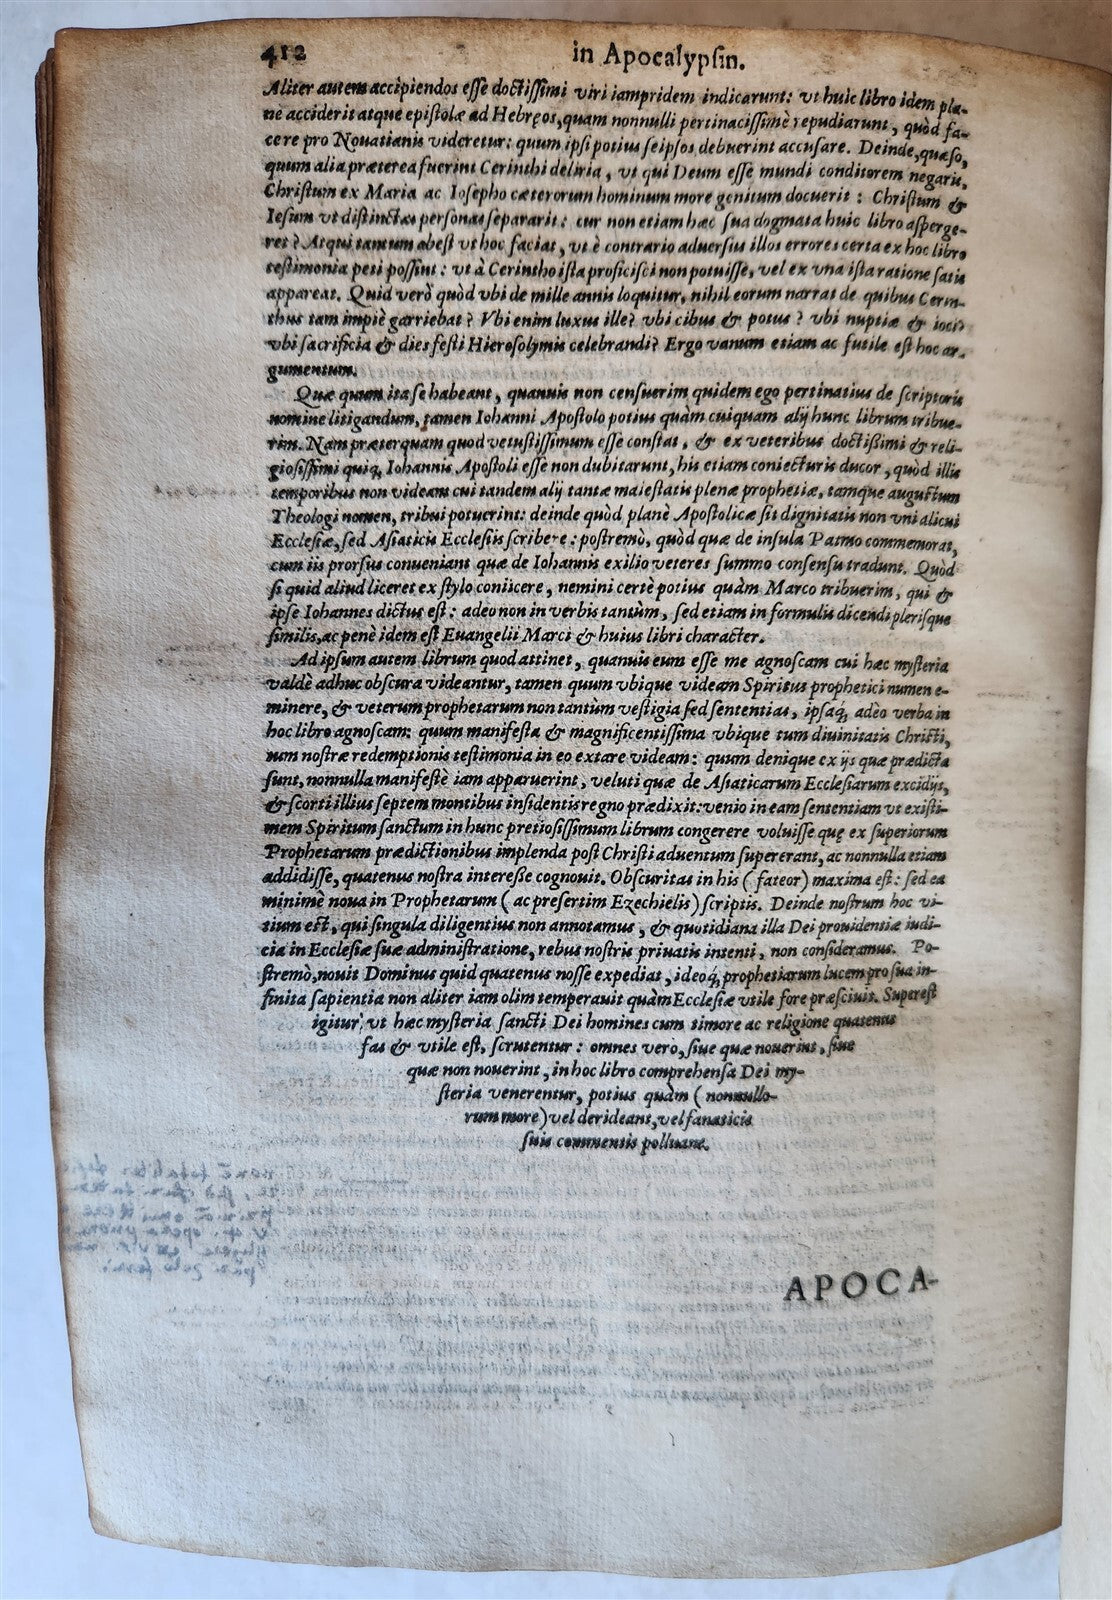 412
in Apocalypsin.
Aliter autem accipiendos esse doctissimi viri iampridem indicarunt: vt huic libro idem pla-
nè acciderit atque epistolæ ad Hebręos, quam nonnulli pertinacissimè repudiarunt, quòd fa-
cere pro Nouatianis videretur: quum ipsi potius seipsos debuerint accusare. Deinde, quæso,
quum alia præterea fuerint Cerinthi deliria, vt qui Deum esse mundi conditorem negarit,
Christum ex Maria ac Iosepho cæterorum hominum more genitum docuerit: Christum &
Iesum vt distinctas personas separarit: cur non etiam hæc sua dogmata huic libro asperge-
ret? Atqui tantum abest vt hoc faciat, vt è contrario aduersus illos errores certa ex hoc libro
testimonia peti possint: vt à Cerintho ista proficisci non potuisse, vel ex vna ista ratione satis
appareat. Quid verò quòd vbi de mille annis loquitur, nihil eorum narrat de quibus Cerin-
thus tam impiè garriebat? Vbi enim luxus ille? vbi cibus & potus? vbi nuptiæ & ioci?
vbi sacrificia & dies festi Hierosolymis celebrandi? Ergo vanum etiam ac futile est hoc ar-
gumentum.
Quæ quum ita se habeant, quanuis non censuerim quidem ego pertinatius de scriptoris
nomine litigandum, tamen Iohanni Apostolo potius quàm cuiquam alij hunc librum tribue-
rim. Nam præterquam quod vetustissimum esse constat, & ex veteribus doctißimi & reli-
giosissimi quiq, Iohannis Apostoli esse non dubitarunt, his etiam coniecturis ducor, quòd illis
temporibus non videam cui tandem alij tantæ maiestatis plenæ prophetiæ, tamque augustum
Theologi nomen, tribui potuerint: deinde quòd planè Apostolicæ sit dignitatis non vni alicui
Ecclesiæ, sed Asiaticis Ecclesiis scribere: postremò, quòd quæ de insula Patmo commemorat,
cum iis prorsus conueniant quæ de Iohannis exilio veteres summo consensu tradunt. Quòd
si quid aliud liceret ex stylo coniicere, nemini certè potius quàm Marco tribuerim, qui &
ipse Iohannes dictus est: adeo non in verbis tantùm, sed etiam in formulis dicendi plerisque
similis, ac penè idem est Euangelii Marci & huius libri character.
Ad ipsum autem librum quod attinet, quanuis eum esse me agnoscam cui hæc mysteria
valdè adhuc obscura videantur, tamen quum vbique videam Spiritus prophetici numen e-
minere, & veterum prophetarum non tantùm vestigia sed sententias, ipsaq́, adèo verba in
hoc libro agnoscam: quum manifesta & magnificentissima vbique tum diuinitatis Christi,
tum nostræ redemptionis testimonia in eo extare videam: quum denique ex ijs quæ prædicta
sunt, nonnulla manifestè iam apparuerint, veluti quæ de Asiaticarum Ecclesiarum excidijs,
& scorti illius septem montibus insidentis regno prædixit: venio in eam sententiam vt existi-
mem Spiritum sanctum in hunc pretiosissimum librum congerere voluisse quę ex superiorum
Prophetarum prædictionibus implenda post Christi aduentum supererant, ac nonnulla etiam
addidisse, quatenus nostra intereße cognouit. Obscuritas in his (fateor) maxima est: sed ea
minimè noua in Prophetarum (ac presertim Ezechielis) scriptis. Deinde nostrum hoc vi-
tium est, qui singula diligentius non annotamus, & quotidiana illa Dei prouidentiæ iudi-
cia in Ecclesiæ suæ administratione, rebus nostris priuatis intenti, non consideramus. Po-
stremò, nouit Dominus quid quatenus nosse expediat, ideoq́, prophetiarum lucem pro sua in-
finita sapientia non aliter iam olim temperauit quàm Ecclesiæ vtile fore præsciuit. Superest
igitur, vt hæc mysteria sancti Dei homines cum timore ac religione quatenus
fas & vtile est, scrutentur: omnes verò, siue quæ nouerint, siue
quæ non nouerint, in hoc libro comprehensa Dei my-
steria venerentur, potius quàm (nonnullo-
rum more) vel derideant, vel fanaticis
suis commentis polluant.
APOCA-